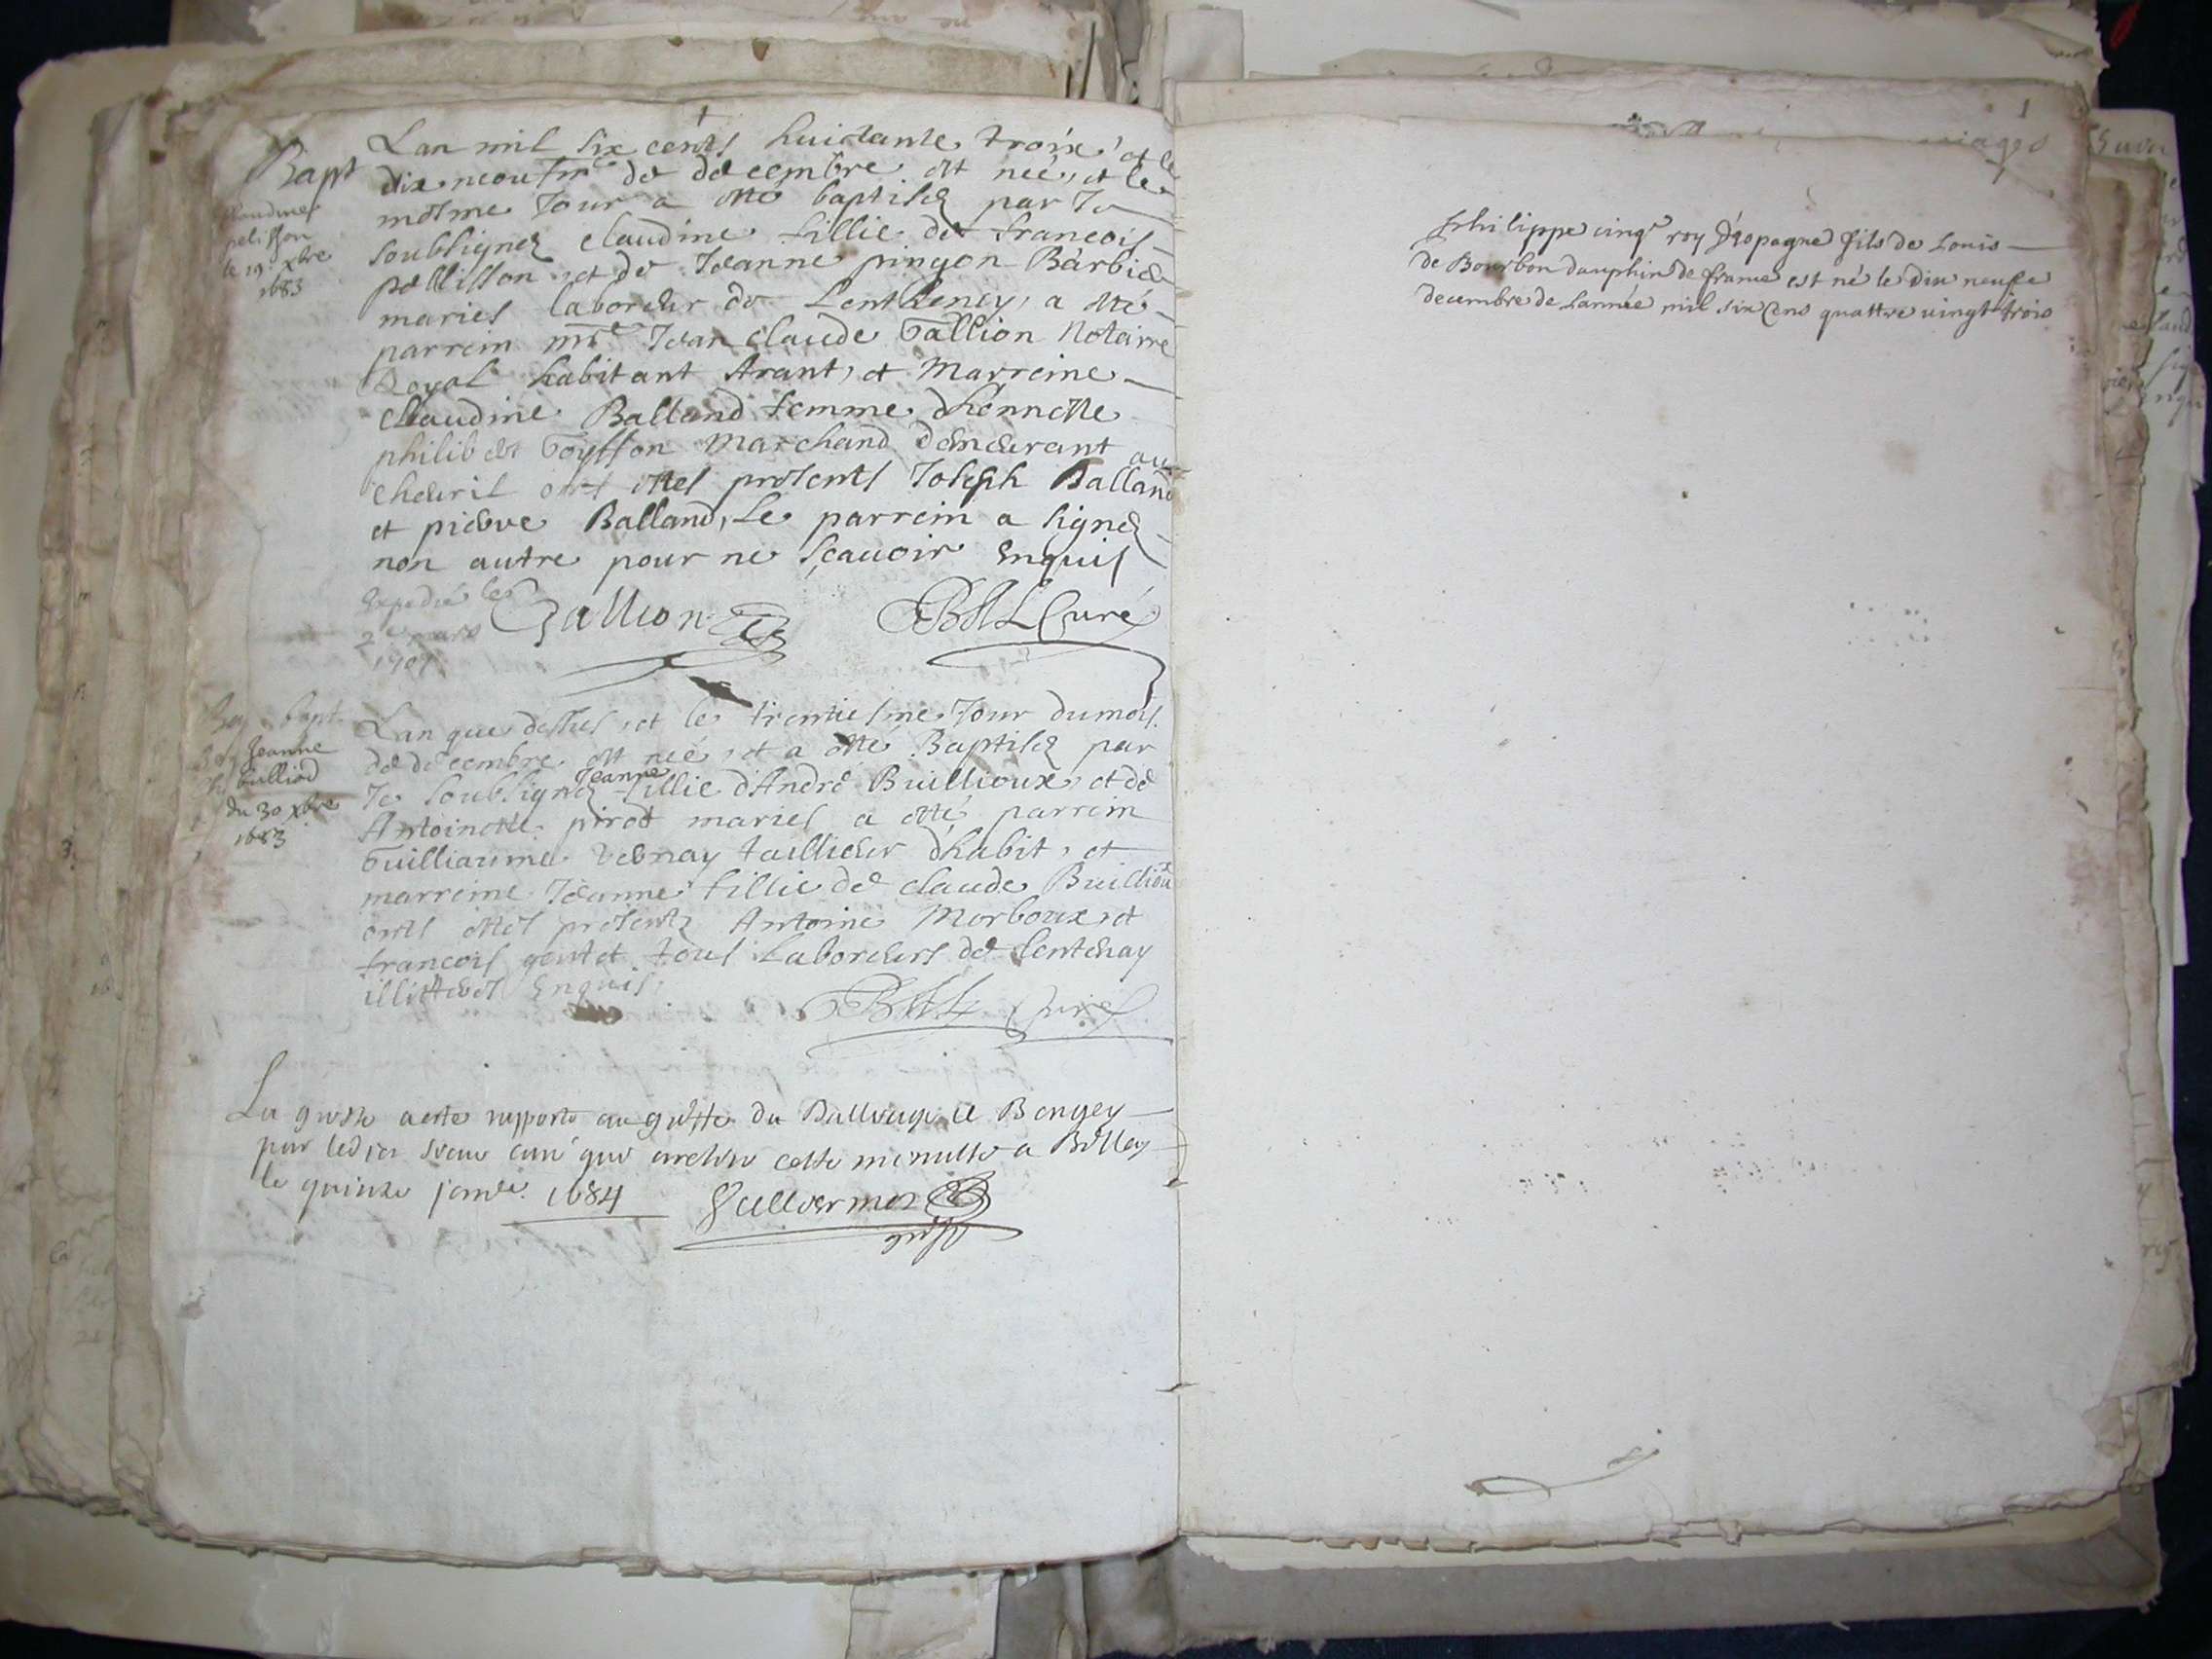 Bapt
Claudine
pelisson
le 19e xbre
1683
Lan mil six cents huictante troix et le
dix neoufme de decembre est neé, et le
mesme Jour a esté baptiseé par Je
soubsignez claudine fillie de francois
pellisson et de Jeanne pingon Barbié
mariés laboreur de Lentheney, a esté
parrein mre Jean claude Gallion Notairre
Royal habitant Arant, et Marreine
Claudine Balland femme dhonneste
philibert Goyffon Marchand demeurant au
Cheuril onts estés presents Joseph Balland
et pierre Balland, Le parrein a signé
non autre pour ne sçauoir Enquis
Expedié le
2e mars
1701
Gallion
Curé
Jeanne
bulliod
du 30 xbre
1683
Lan que dessus, et le trentiesme Jour du mois
de decembre est neé, et a esté Baptiseé par
Je soubsignez Jeanne fillie dAndré Buillioux, et de
Antoinette pirod mariés a esté parrein
Guilliaume Vernay taillieur dhabit, et
marreine Jeanne fillie de claude Buillioux
onts estés presents Antoine Morboux, et
francois gentet tous Laboreurs de Lentenay
illitterés Enquis,
Curé
La grosse a esté rapporté au greffe du Balliage de Bengey
par ledict sieur curé qui a retiré cette minutte a Belley
le quinze janvr. 1684
Guillermet
1
Philippe cinqe roy d'éspagne fils de Louis
de Bourbon dauphin de france est né le dix neufe
decembre de Lannée mil six cens quattre uingt trois